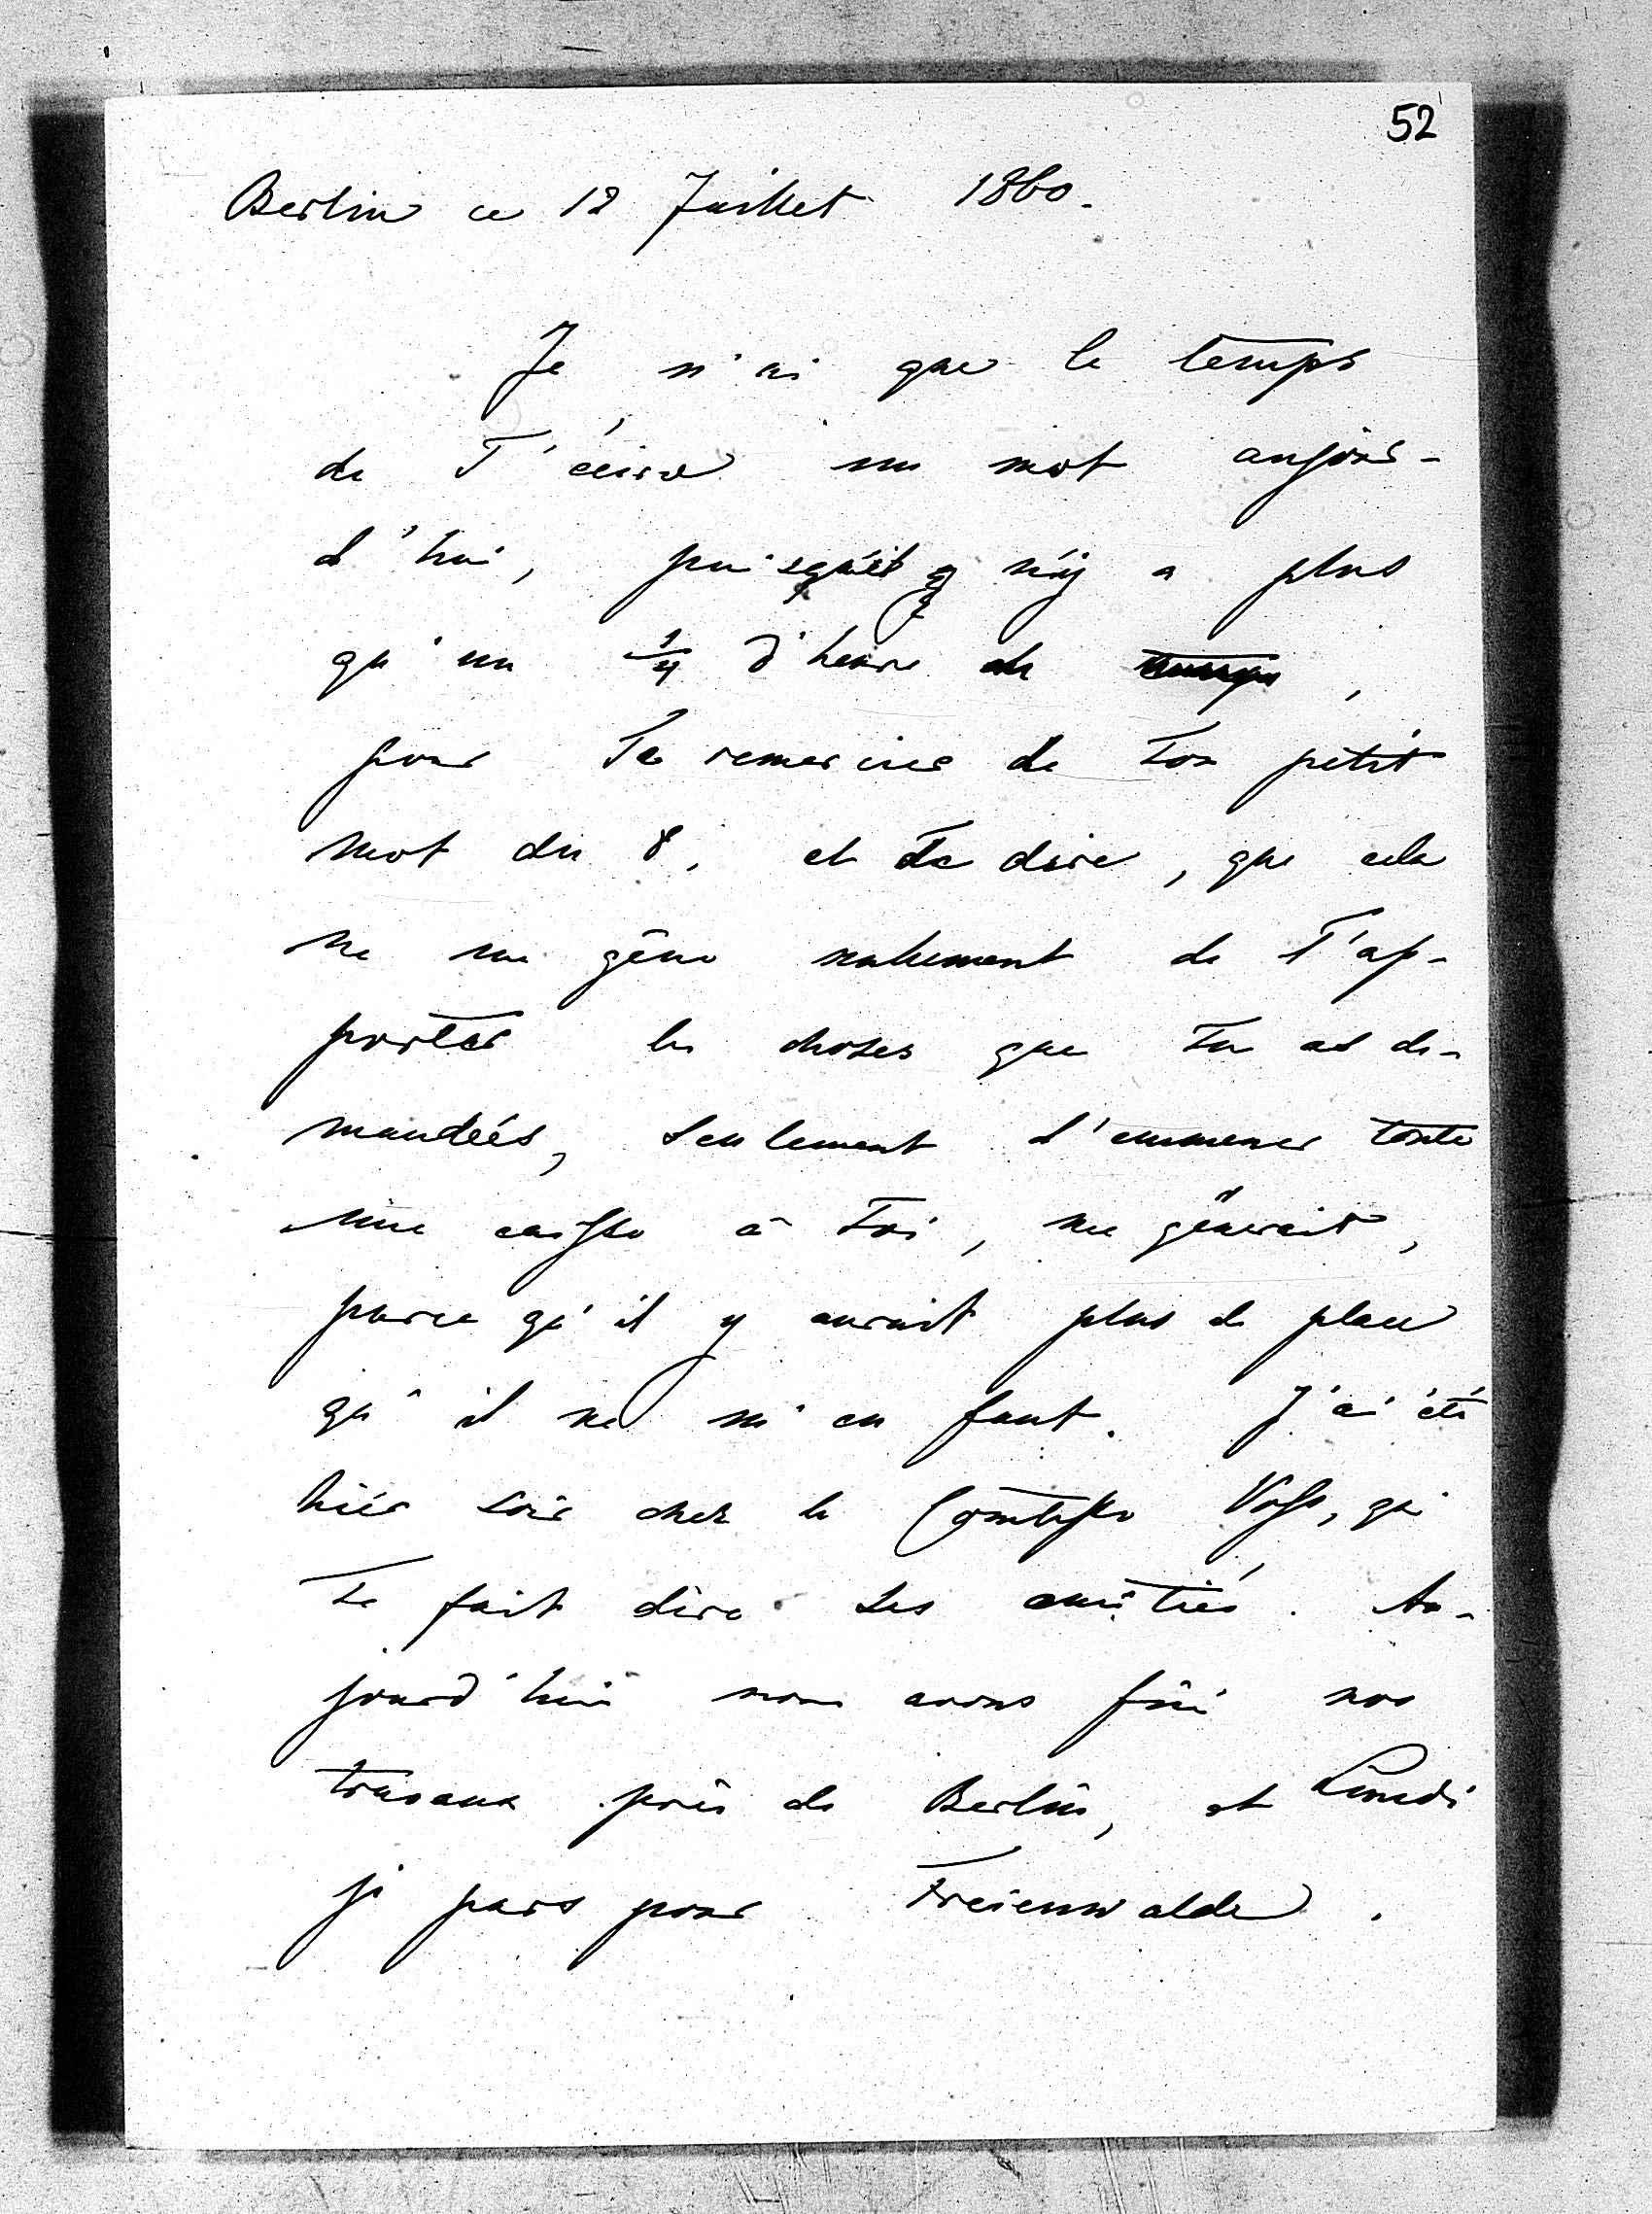 52
Berlin ce 12 Juillet 1860.
Je n'ai que le temps
de T'écire un mot aujour-
d'hui, puisqu'il n'y a plus
qu'un 1/4 d'heure de temps,
pour Te remercier de Ton petit
mot du 8. et Te dire, que cela
ne me gêne nullement de T'ap-
porter les choses que Tu as de-
mandées, seulement d'emmener toute
une caisse à Toi, me gênerait,
parce qu'il y aurait plus de place
qu'il ne m'en faut. J'ai été
hier soir chez la Comtesse Voss, qui
Te fait dire ses amitiés. Au-
jourd'hui nous avons fini nos
travaux près de Berlin, et Lundi
je pars pour Freienwalde.